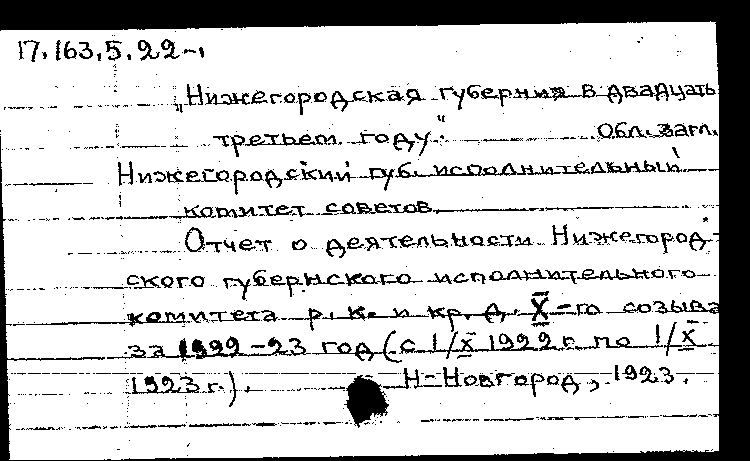 17.163.5.22-1
„Нижегородская губерния в двадцать
третьем году". Обл. загл.
Нижегородский губ. исполнительный
комитет советов.
Отчет о деятельности Нижегород-
ского губернского исполнительного
комитета р. к. и кр. д. X-го созыва
за 1922-23 год (с 1/X 1922 г. по 1/X
1923 г.). Н-Новгород, 1923.